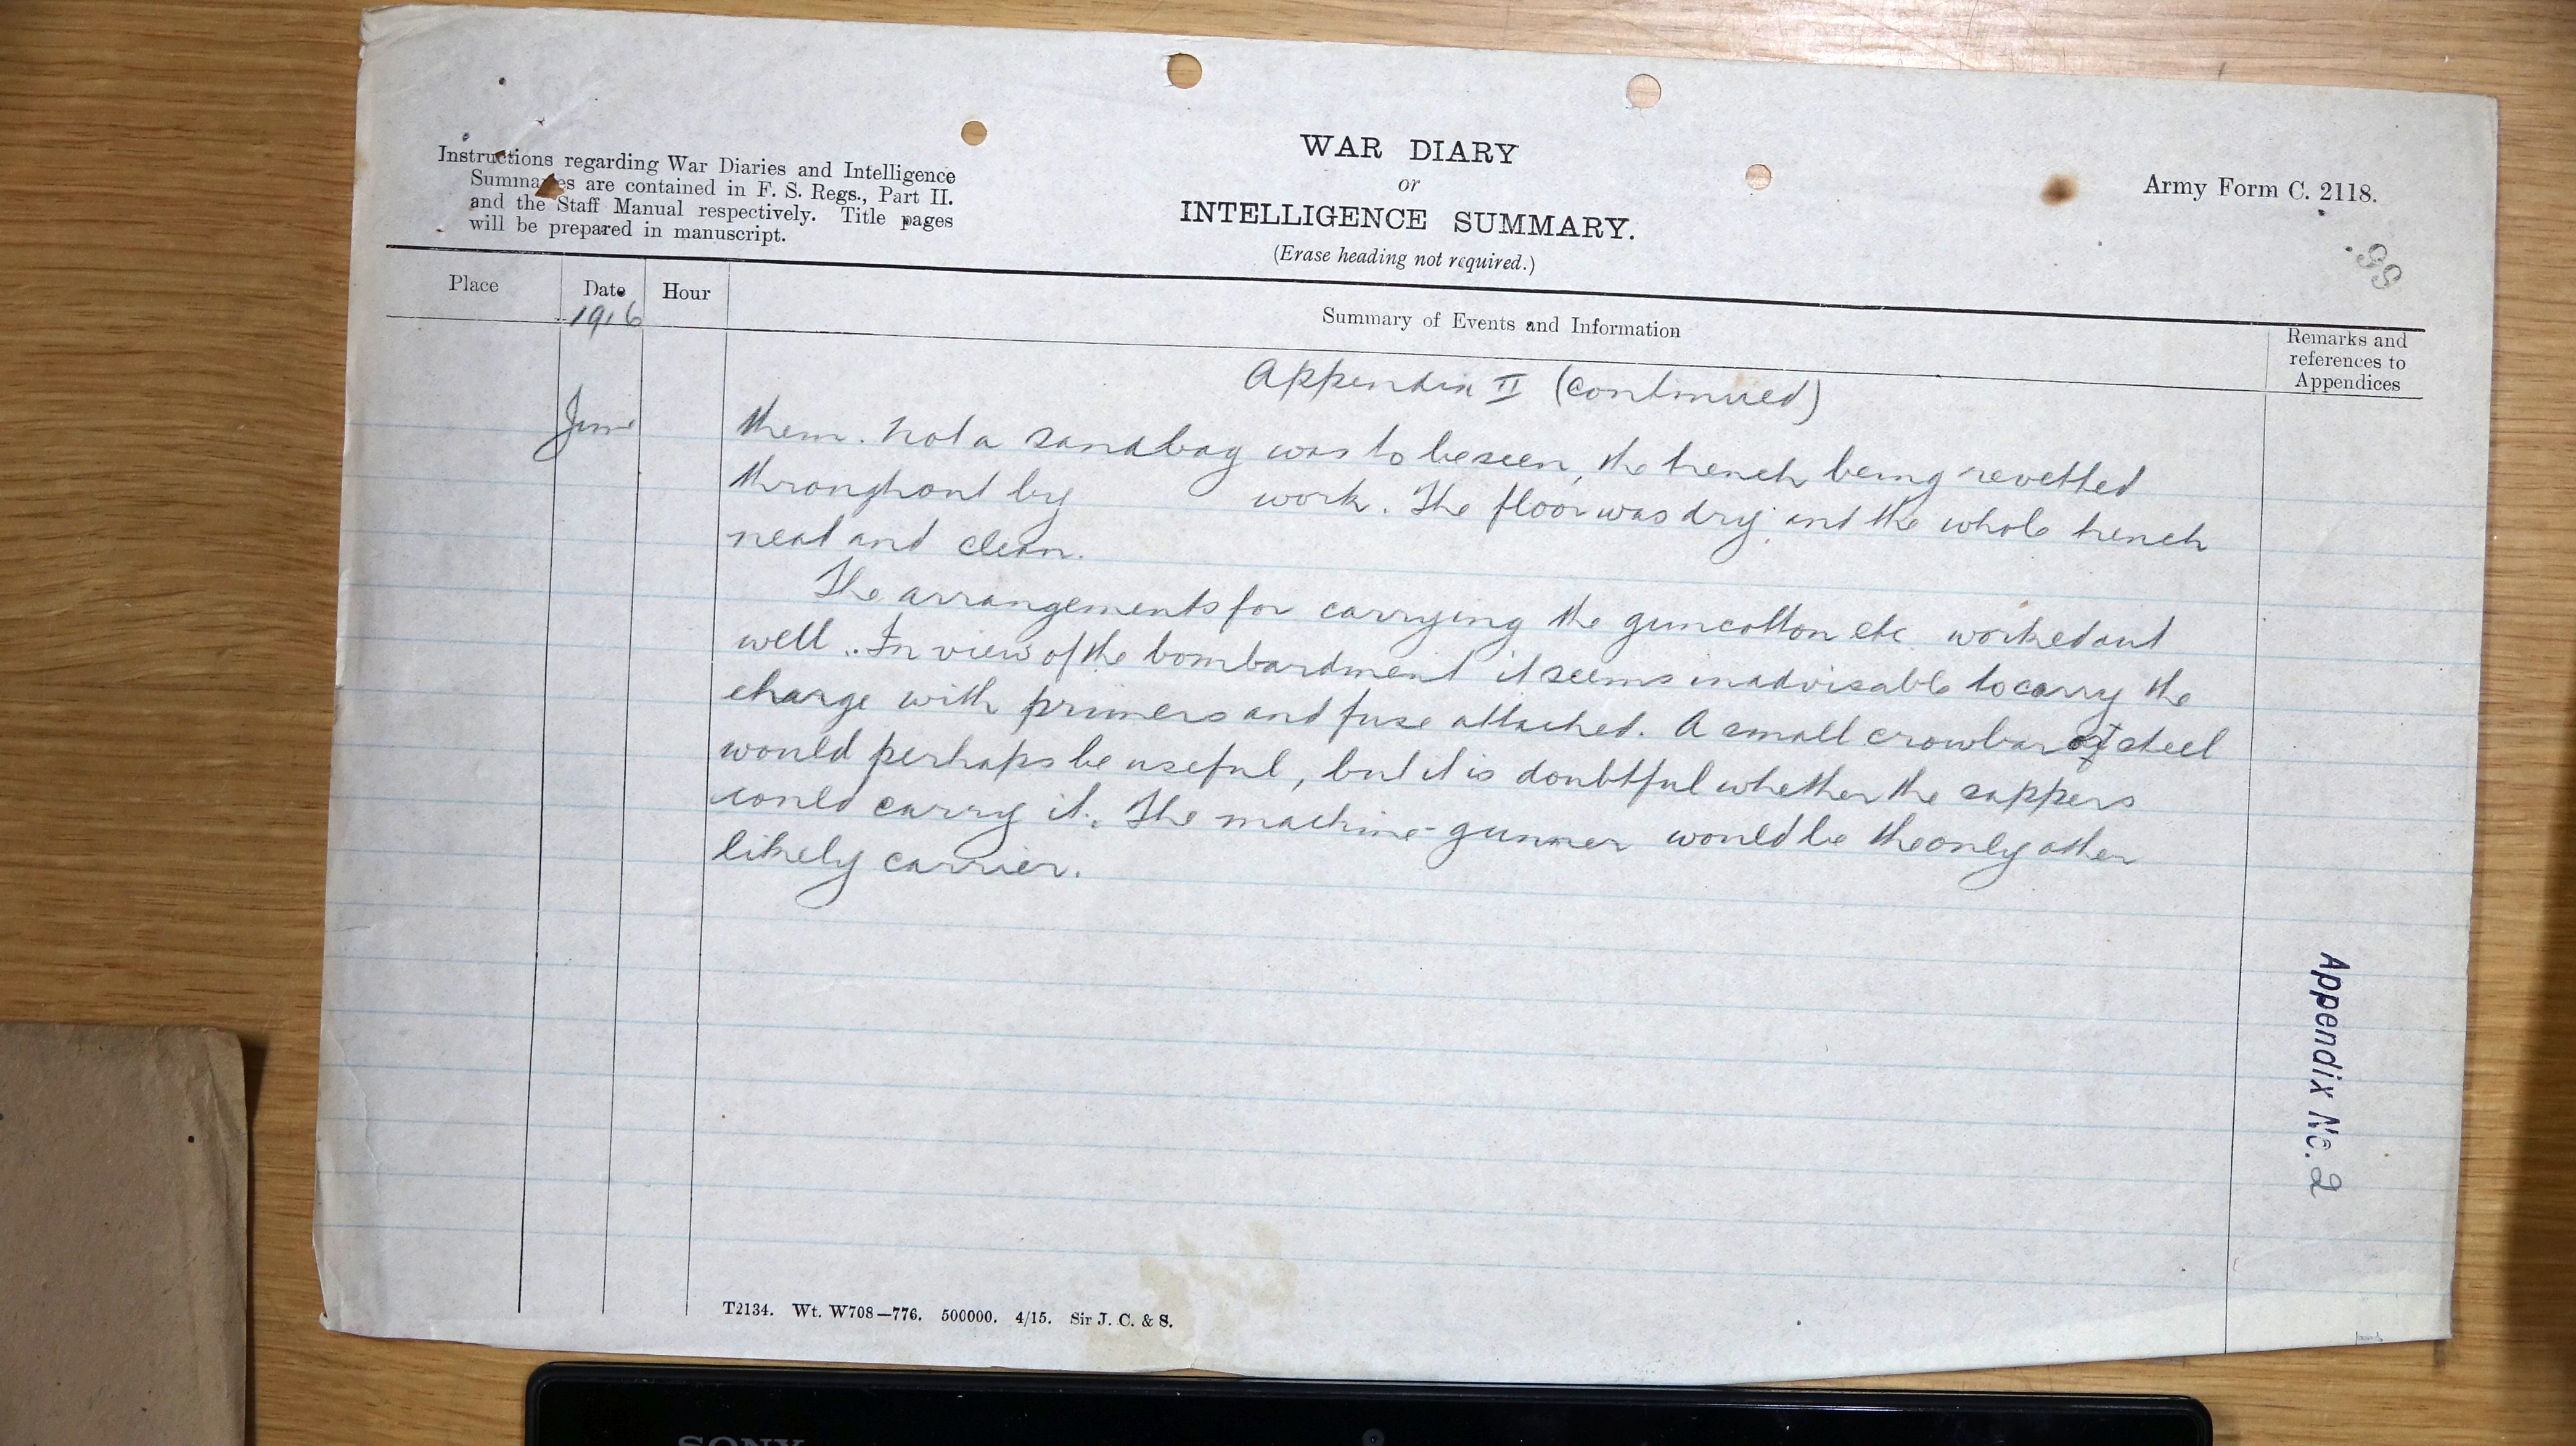 WAR DIARY
or
INTELLIGENCE SUMMARY.
(Erase heading not required.)
Instructions regarding War Diaries and Intelligence
Summaries are contained in F. S. Regs., Part II.
and the Staff Manual respectively. Title pages
will be prepared in manuscript.
Army Form C. 2118.
Place
Date
1916
Hour
Summary of Events and Information
Remarks and
references to
Appendices
Appendix II (continued)
June
them. Not a sandbag was to be seen, the trench being revetted
throughout by work. The floor was dry and the whole trench
neat and clean.
The arrangements for carrying the guncotton etc worked out
well.. In view of the bombardment it seems inadvisable to carry the
charge with primers and fuse attached. A small crowbar of steel
would perhaps be useful, but it is doubtful whether the sappers
could carry it. The machine-gunner would be the only other
likely carrier.
Appendix No. 2
T2134. Wt. W708—776. 500000. 4/15. Sir J. C. & S.
SONY